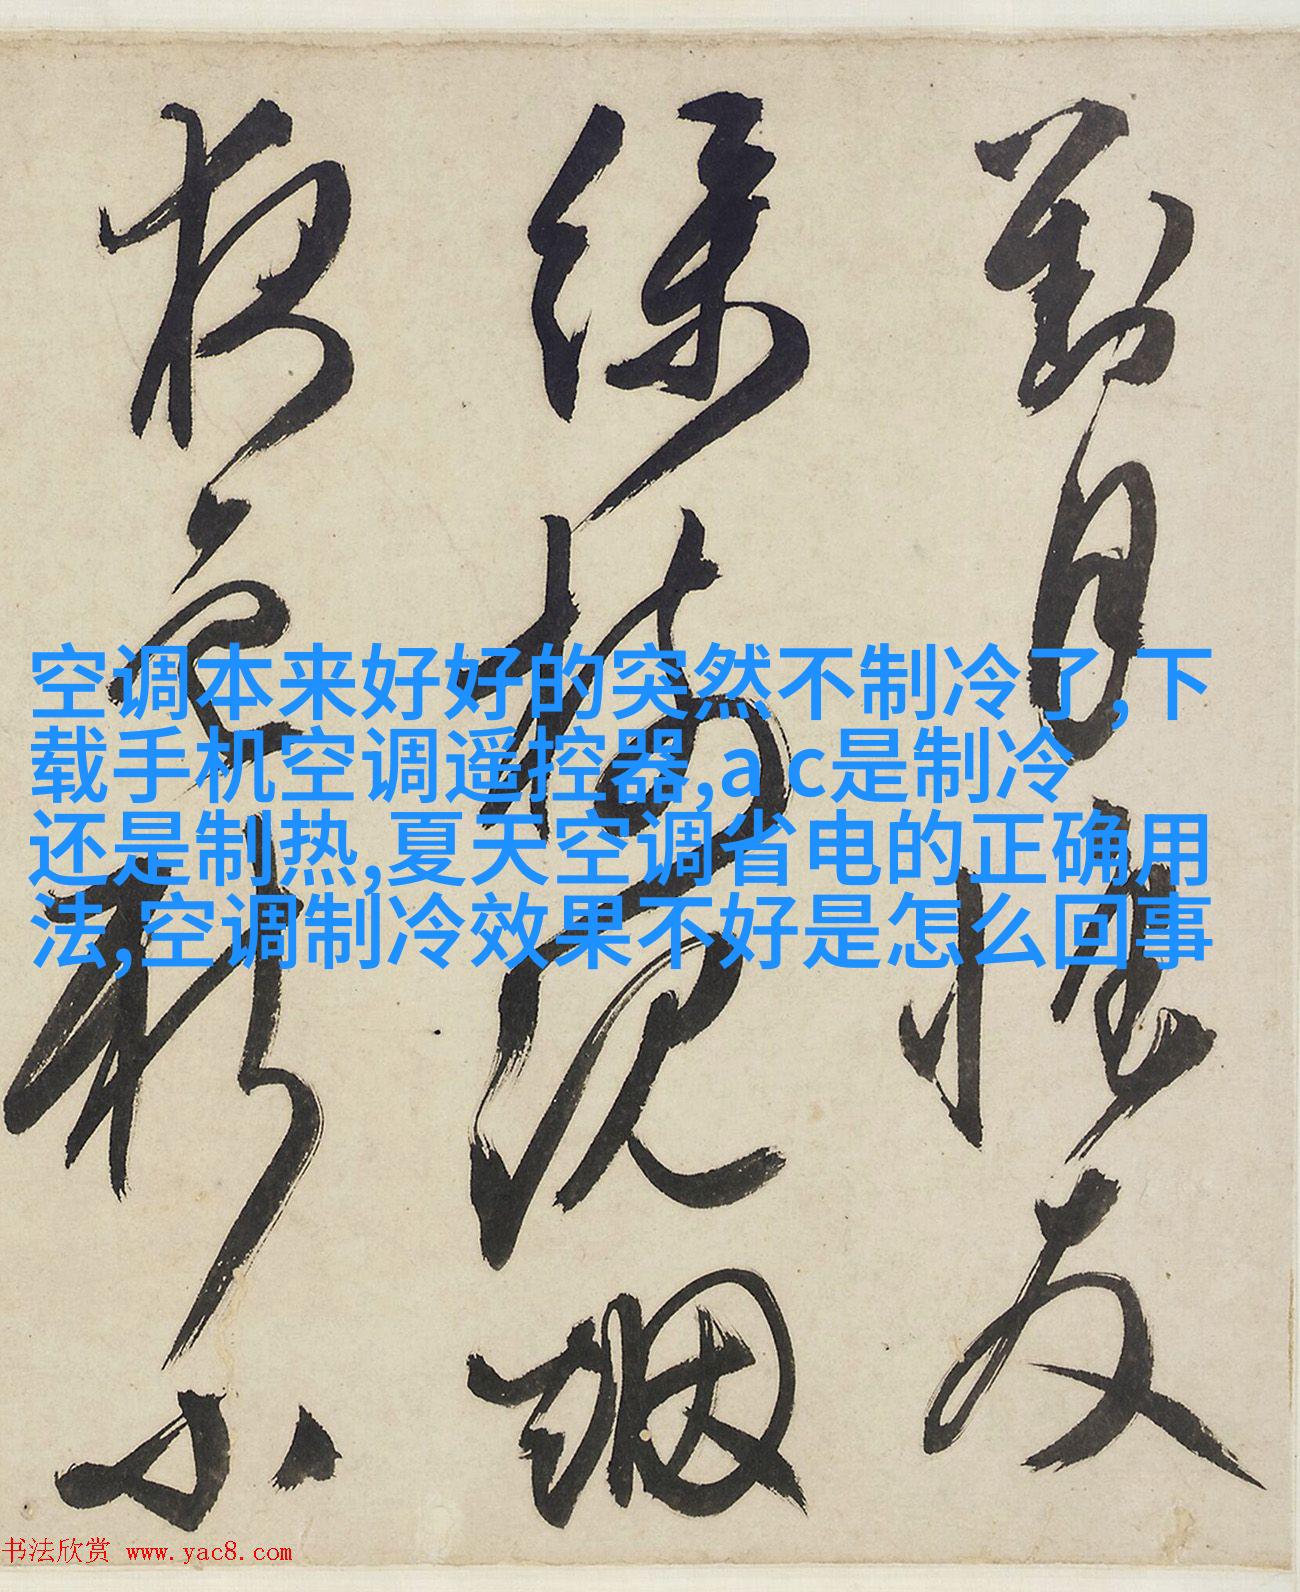 對月惟友
空调本来好好的突然不制冷了,下
载手机空调遥控器,a c是制冷
还是制热,夏天空调省电的正确用
法,空调制冷效果不好是怎么回事
书法欣赏 www.yac8.com